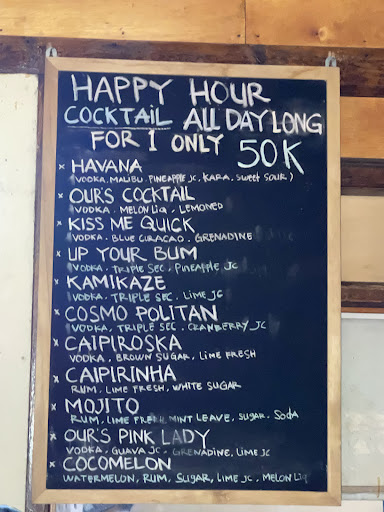 HAPPY HOUR
COCKTAIL ALL DAY LONG
FOR 1 ONLY 50K
x HAVANA
(VODKA, MALIBU, PINEAPPLE JC, KARA, SWEET SOUR)
x OUR'S COCKTAIL
VODKA, MELON LIQ, LEMONED
x KISS ME QUICK
VODKA, BLUE CURACAO, GRENADINE
x UP YOUR BUM
VODKA, TRIPLE SEC, PINEAPLE JC
x KAMIKAZE
VODKA, TRIPLE SEC, LIME JC
x COSMO POLITAN
VODKA, TRIPLE SEC, CRANBERRY JC
x CAIPIROSKA
VODKA, BROWN SUGAR, LIME FRESH
x CAIPIRINHA
RUM, LIME FRESH, WHITE SUGAR
x MOJITO
RUM, LIME FRESH, MINT LEAVE, SUGAR, SODA
x OUR'S PINK LADY
VODKA, GUAVA JC, GRENADINE, LIME JC
x COCOMELON
WATERMELON, RUM, SUGAR, LIME JC, MELON LIQ